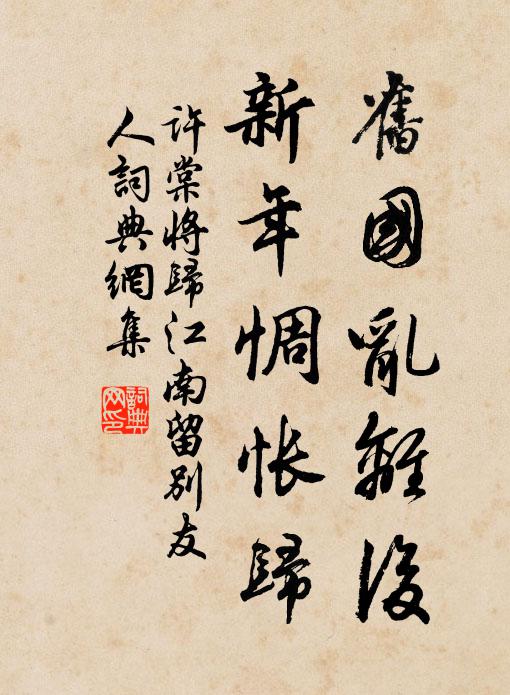 舊國亂離後
新年惆悵歸
許棠將歸江南留別友
人詞典網集
詞典
网印